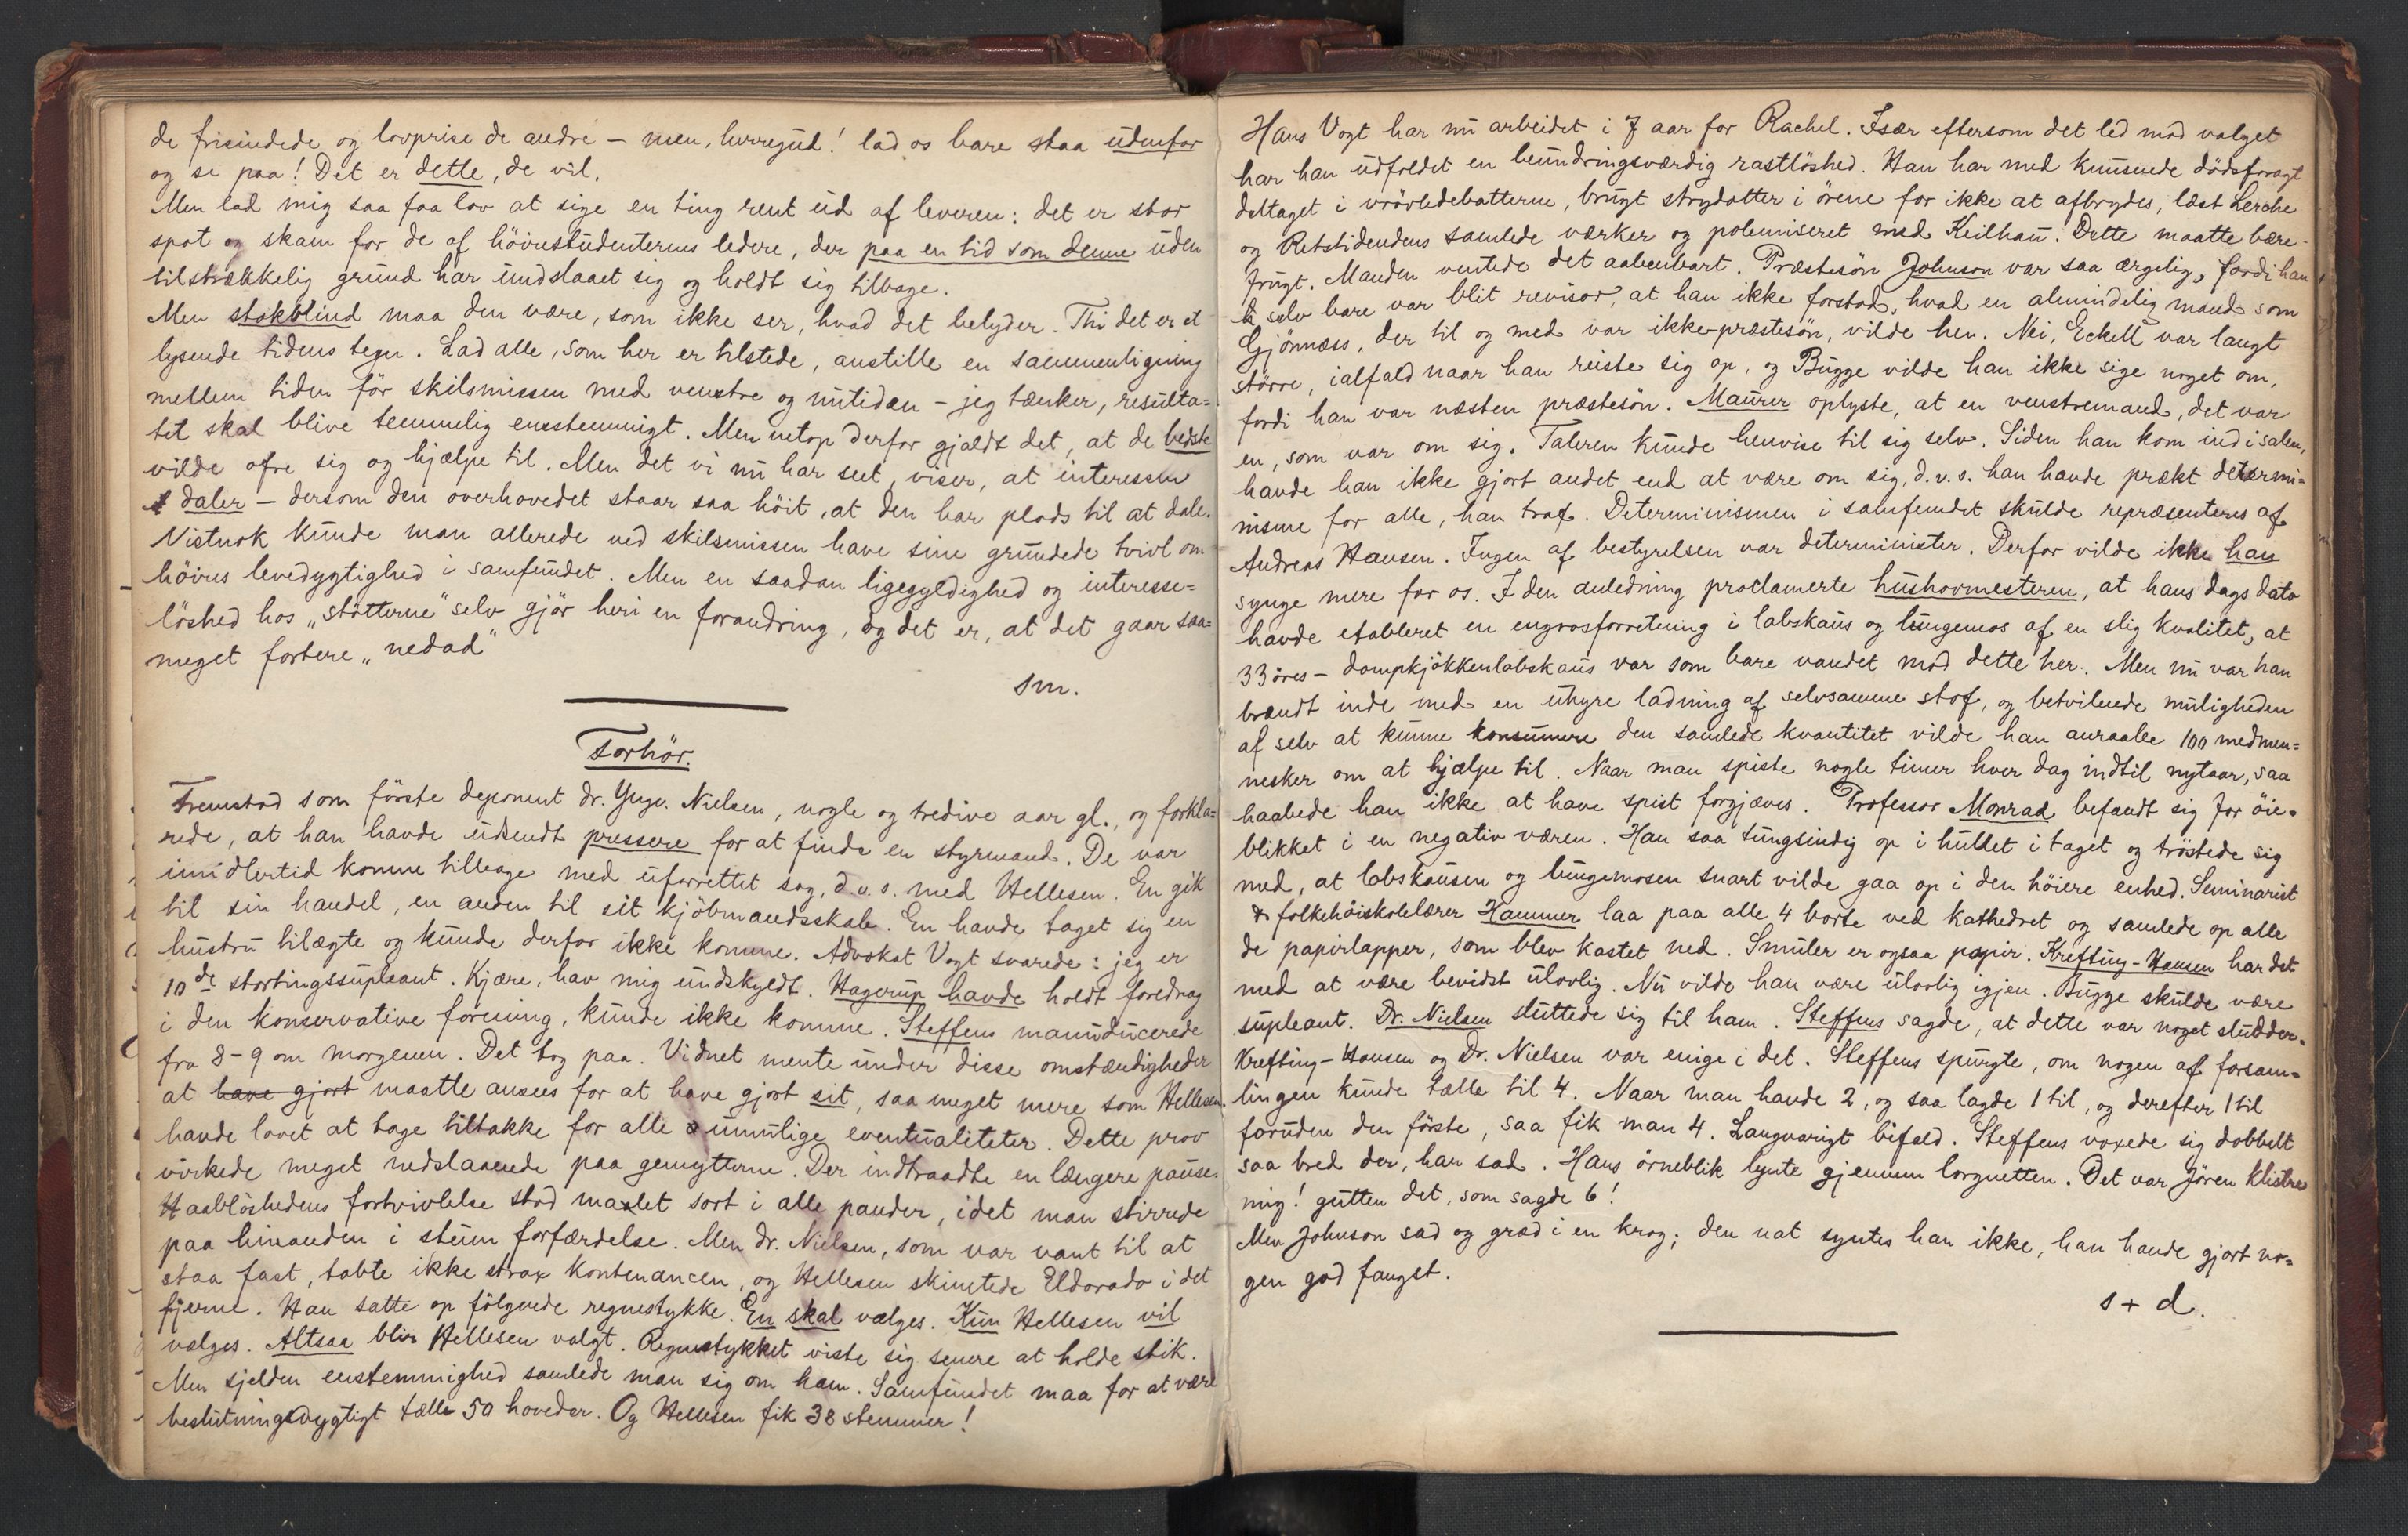 de frisindede og lovprise de andre – men, herregud! lad os bare staa udenfor
og se paa! Det er dette, de vil.
Men lad mig saa faa lov at sige en ting rent ud af leveren: det er stor
spot og skam for de af höirestudenternes ledere, der paa en tid som denne uden
tilstrækkelig grund har undslaaet sig og holdt sig tilbage.
Men stokblind maa den være, som ikke ser, hvad det betyder. Thi det er et
lysende tidens tegn. Lad alle, som her er tilstede, anstille en sammenligning
mellem tiden för skilsmissen med venstre og nutiden – jeg tænker, resulta=
tet skal blive temmelig enstemmigt. Men netop derfor gjaldt det, at de bedste
vilde ofre sig og hjælpe til. Men det vi nu har seet, viser, at interessen
daler – dersom den overhovedet staar saa höit, at den har plads til at dale.
Vistnok kunde man allerede ved skilsmissen have sine grundede tvivl om
höires levedygtighed i samfundet. Men en saadan ligegyldighed og interesse=
löshed hos „stötterne" selv gjör heri en forandring, og det er, at det gaar saa=
meget fortere „nedad"
sm.
Forhör.
Fremstod som förste deponent dr. Yngv. Nielsen, nogle og tredive aar gl., og forkla=
rede, at han havde udsendt pressere for at finde en styrmand. De var
imidlertid komne tilbage med uforrettet sag, d.v.s. med Hellesen. En gik
til sin handel, en anden til sit kjöbmandsskab. En havde taget sig en
hustru tilægte og kunde derfor ikke komme. Advokat Vogt svarede: jeg er
10de stortingssupleant. Kjære, hav mig undskyldt. Hagerup havde holdt foredrag
i den konservative forening, kunde ikke komme. Steffens manuducerede
fra 8-9 om morgenen. Det tog paa. Vidnet mente under disse omstændigheder
at have gjort maatte ansees for at have gjort sit, saa meget mere som Hellesen
havde lovet at tage tiltakke for alle umulige eventualiteter. Dette prov
virkede meget nedslaaende paa gemytterne. Der indtraadte en længere pause.
Haablöshedens fortvivlelse stod malet sort i alle pander, idet man stirrede
paa hinanden i stum forfærdelse. Men dr. Nielsen, som var vant til at
staa fast, tabte ikke strax kontenancen, og Hellesen skimtede Eldorado i det
fjerne. Han satte op fölgende regnestykke. En skal vælges. Kun Hellesen vil
vælges. Altsaa blir Hellesen valgt. Regnestykket viste sig senere at holde stik.
Men sjelden enstemmighed samlede man sig om ham. Samfundet maa for at være
beslutningsdygtigt tælle 50 hoveder. Og Hellesen fik 38 stemmer!
Hans Vogt har nu arbeidet i 7 aar for Rachel. Især eftersom det led mod valget
har han udfoldet en beundringsværdig rastlöshed. Han har med knusende dödsforagt
deltaget i vrövledebatterne, brugt strydotter i örene for ikke at afbrydes, læst Lerche
og Retstidendens samlede værker og polemiseret med Keilhau. Dette maatte bære
frugt. Manden ventede det aabenbart. Præstesön Johnson var saa ærgelig, fordi han
selv bare var blit revisor, at han ikke forstod, hvad en almindelig mand som
Gjönnæss, der til og med var ikke-præstesön, vilde her. Nei, Eckell var langt
större, ialfald naar han reiste sig op, og Bugge vilde han ikke sige noget om,
fordi han var næsten præstesön. Maurer oplyste, at en venstremand, det var
en, som var om sig. Taleren kunde henvise til sig selv. Siden han kom ind i salen,
havde han ikke gjort andet end at være om sig, d.v.s. han havde prækt determi=
nisme for alle, han traf. Determinismen i samfundet skulde repræsenteres af
Andreas Hansen. Ingen af bestyrelsen var determinister. Derfor vilde ikke han
synge mere for os. I den anledning proclamerte hushovmesteren, at hans dags dato
havde etableret en engrosforretning i labskaus og lungemos af en slig kvalitet, at
33 öres – dampkjökkenlabskaus var som bare vandet mod dette her. Men nu var han
brændt inde med en uhyre ladning af selvsamme stof, og betvilende muligheden
af selv at kunne konsumere den samlede kvantitet vilde han anraabe 100 medmen=
nesker om at hjælpe til. Naar man spiste nogle timer hver dag indtil nytaar, saa
haabede han ikke at have spist forgjæves. Professor Monrad befandt sig for öie=
blikket i en negativ væren. Han saa tungsindig op i hullet i taget og tröstede sig
med, at labskausen og lungemosen snart vilde gaa op i den höiere enhed. Seminarist
& folkehöiskolelærer Hammer laa paa alle 4 borte ved kathedret og samlede op alle
de papirlapper, som blev kastet ned. Smuler er ogsaa papir. Krefting-Hansen har det
med at være bevidst ulovlig. Nu vilde han være ulovlig igjen. Bugge skulde være
supleant. Dr. Nielsen sluttede sig til ham. Steffens sagde, at dette var noget sludder.
Krefting-Hansen og Dr. Nielsen var enige i det. Steffens spurgte, om nogen af forsam=
lingen kunde tælle til 4. Naar man havde 2, og saa lagde 1 til, og derefter 1 til
foruden den förste, saa fik man 4. Langvarigt bifald. Steffens voxede sig dobbelt
saa bred der, han sad. Hans örneblik lynte gjennem lorgnetten. Det var Jören klistre
mig! gutten det, som sagde 6!
Men Johnson sad og græd i en krog; den nat syntes han ikke, han havde gjort no=
gen god fangst.
s + d.